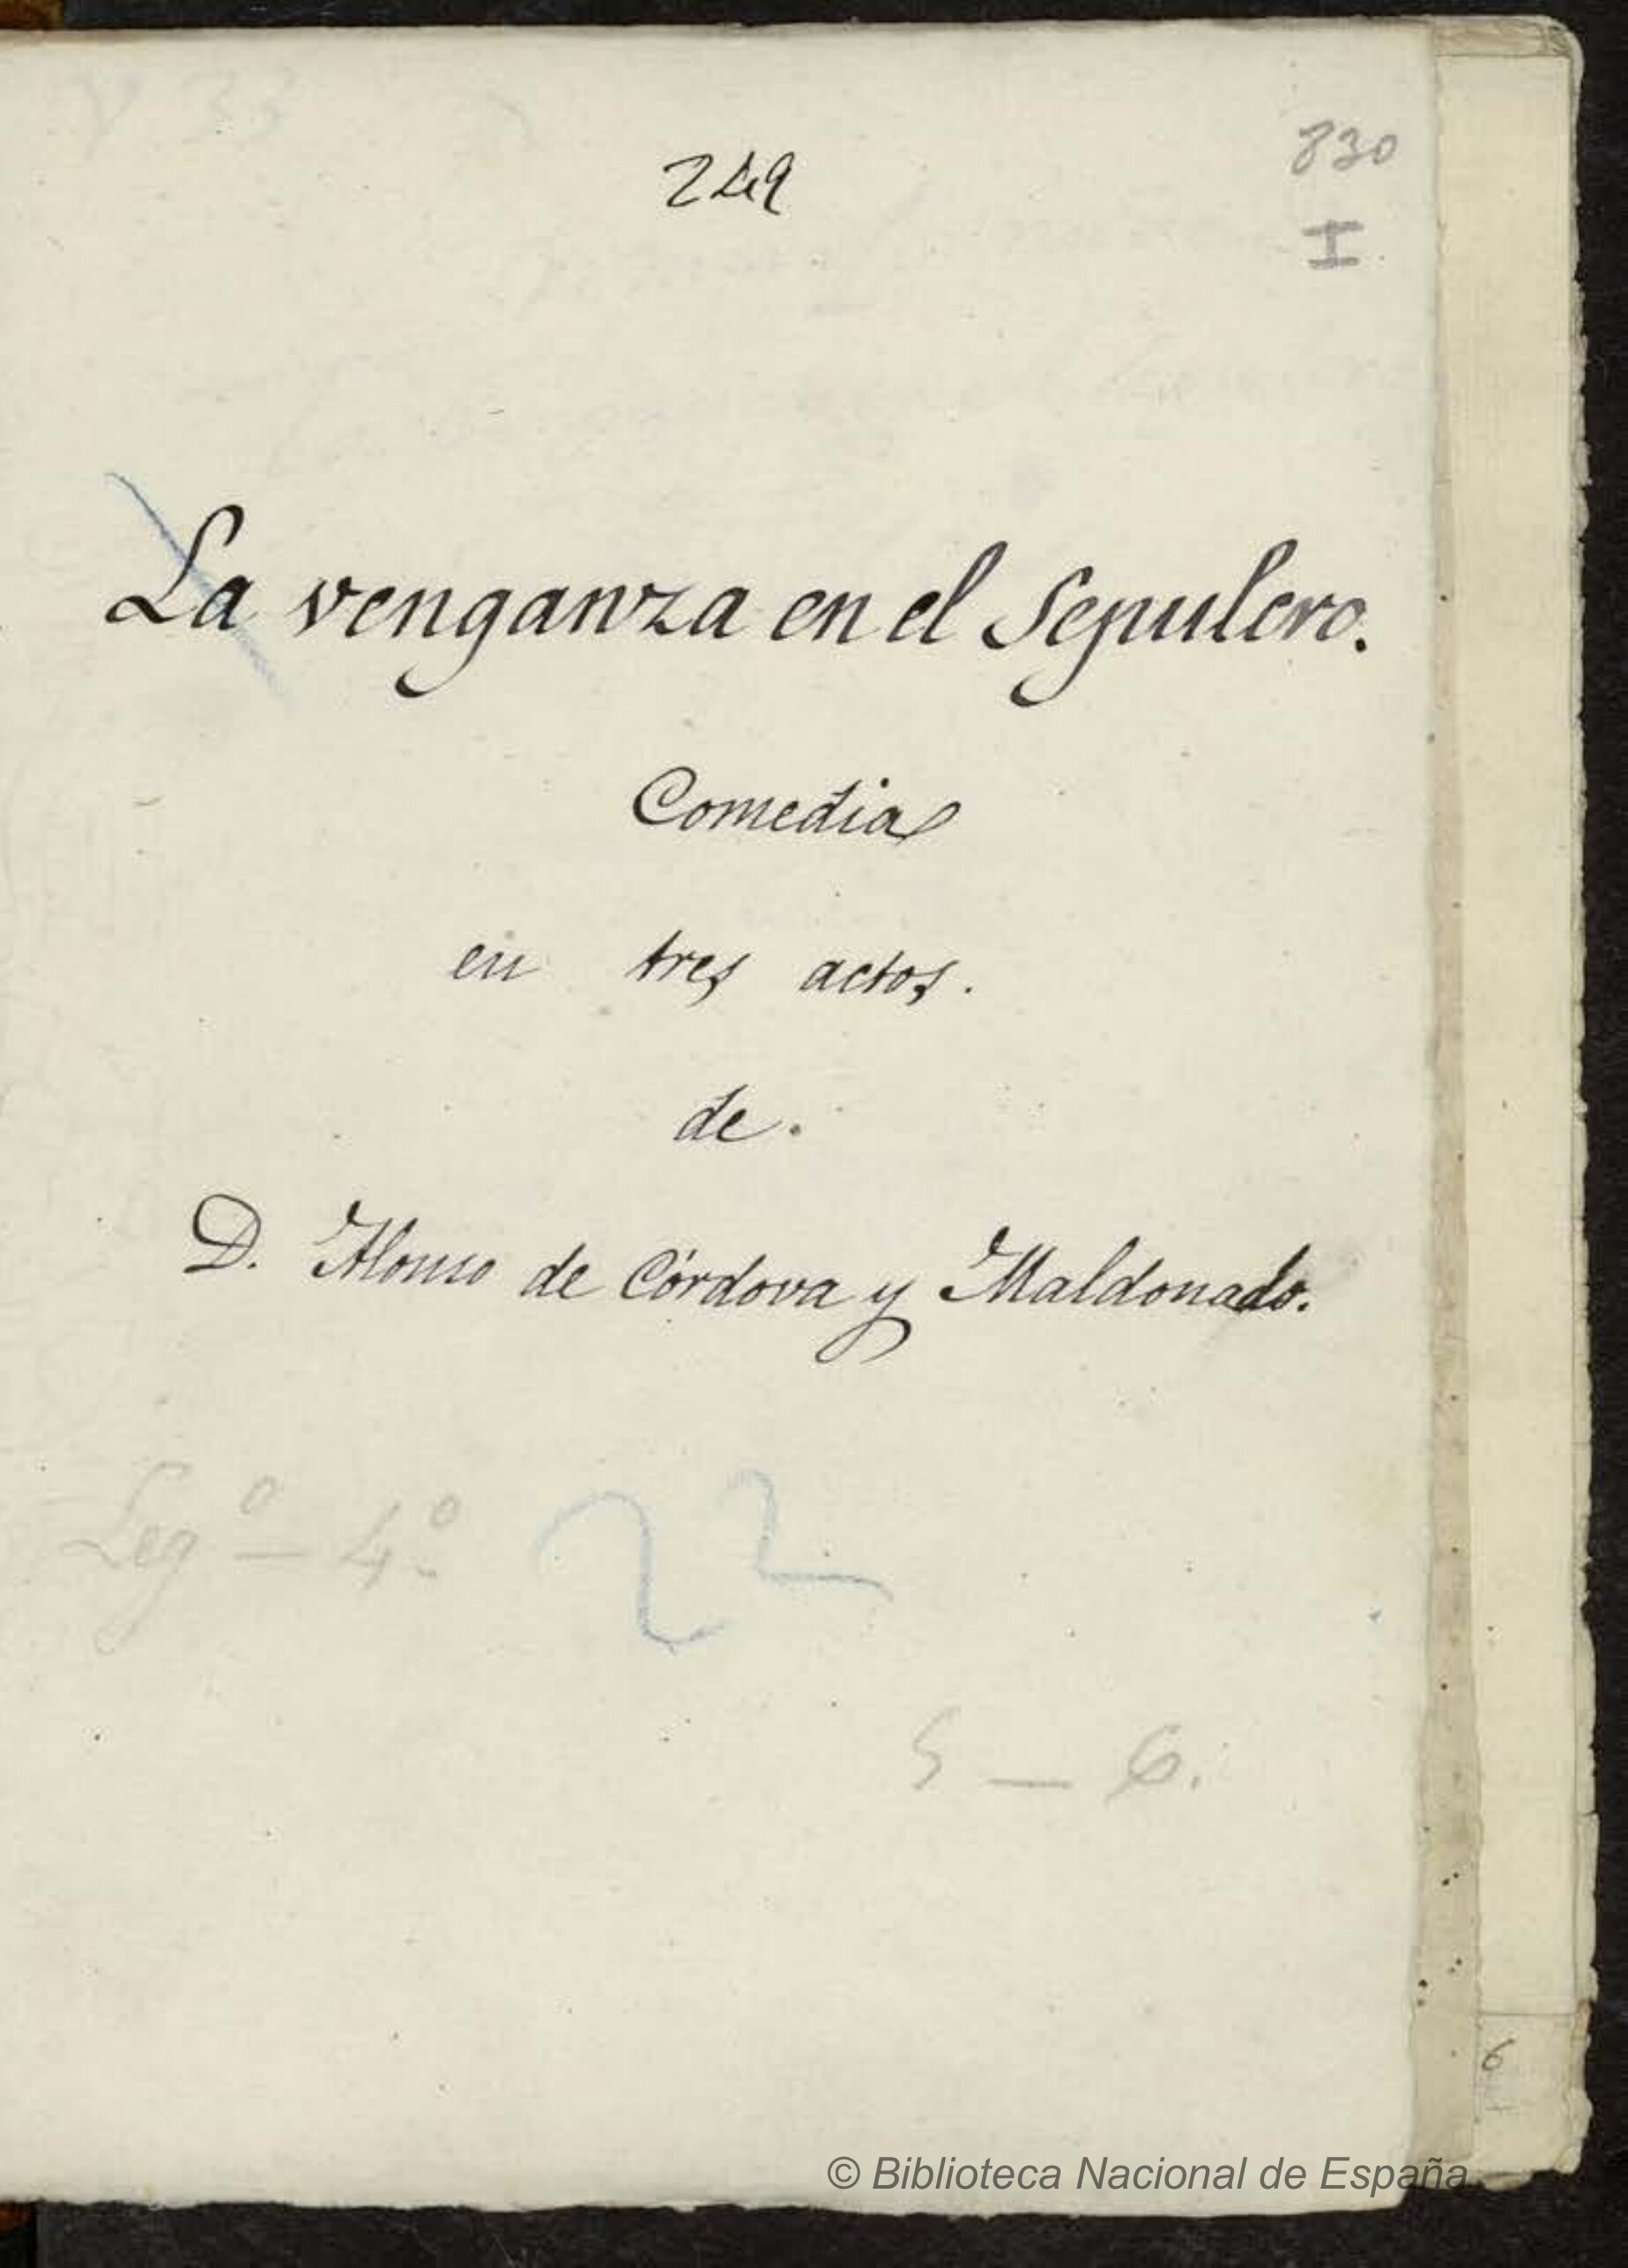 249
830
I
La venganza en el Sepulcro.
Comedia
en tres actos.
de.
D. Alonso de Córdova y Maldonado.
Leg.º — 4.º 22
5 — 6.
6
© Biblioteca Nacional de España